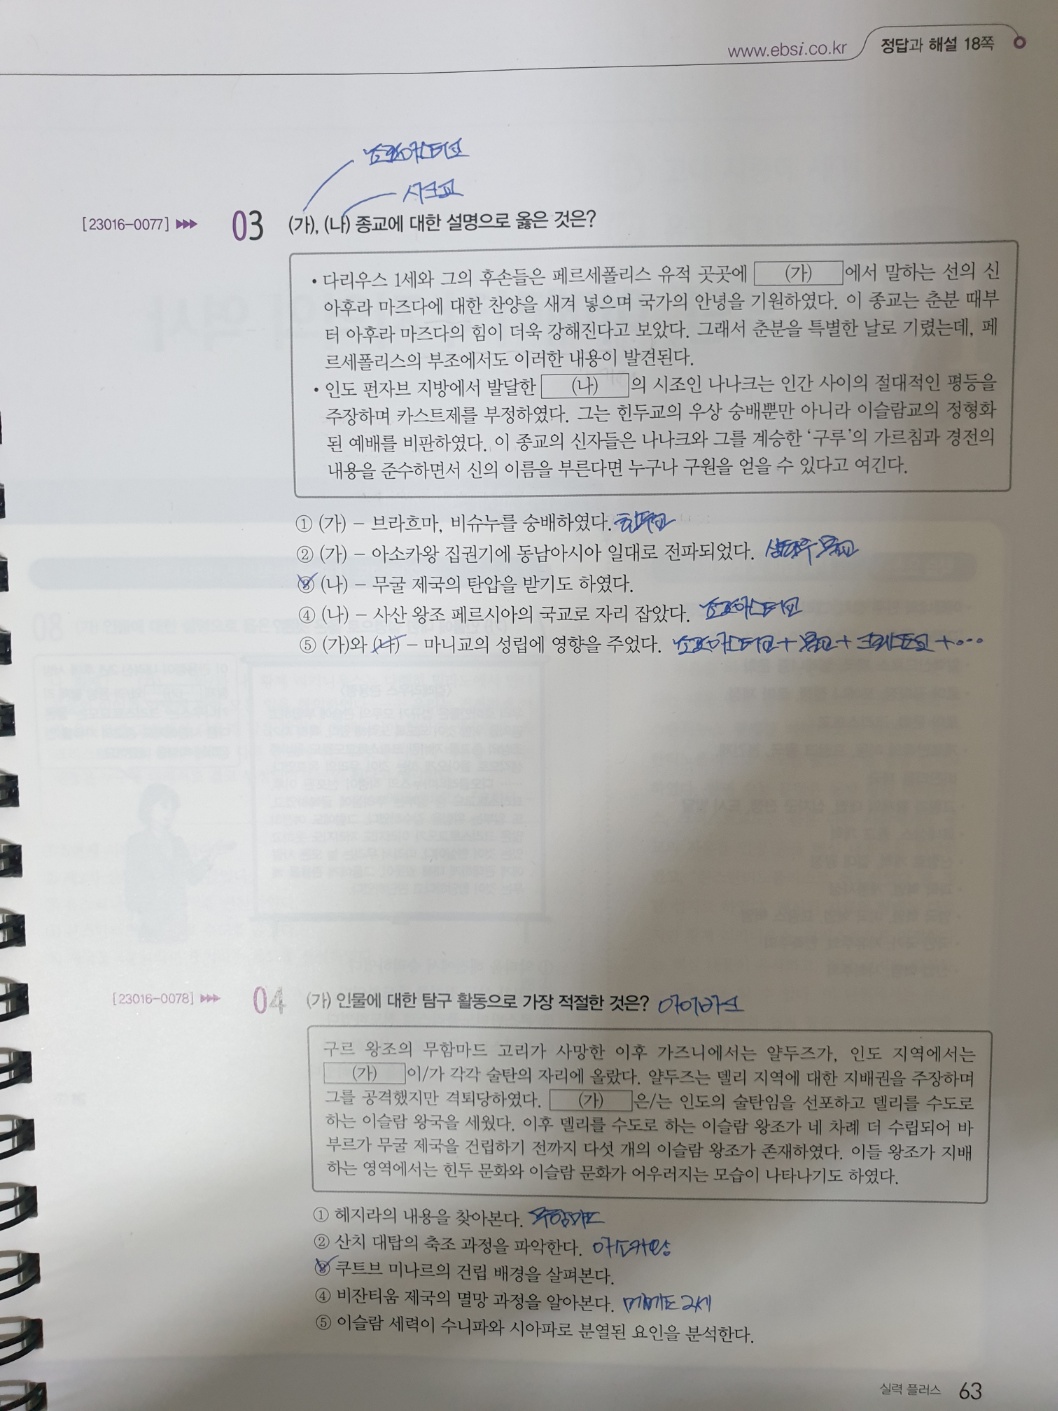 www.ebsi.co.kr 정답과 해설 18쪽
조로아스터교
시크교
[23016-0077] ▸▸▸ 03 (가), (나) 종교에 대한 설명으로 옳은 것은?
• 다리우스 1세와 그의 후손들은 페르세폴리스 유적 곳곳에 (가) 에서 말하는 선의 신
아후라 마즈다에 대한 찬양을 새겨 넣으며 국가의 안녕을 기원하였다. 이 종교는 춘분 때부
터 아후라 마즈다의 힘이 더욱 강해진다고 보았다. 그래서 춘분을 특별한 날로 기렸는데, 페
르세폴리스의 부조에서도 이러한 내용이 발견된다.
• 인도 펀자브 지방에서 발달한 (나) 의 시조인 나나크는 인간 사이의 절대적인 평등을
주장하며 카스트제를 부정하였다. 그는 힌두교의 우상 숭배뿐만 아니라 이슬람교의 정형화
된 예배를 비판하였다. 이 종교의 신자들은 나나크와 그를 계승한 '구루'의 가르침과 경전의
내용을 준수하면서 신의 이름을 부른다면 누구나 구원을 얻을 수 있다고 여긴다.
① (가) – 브라흐마, 비슈누를 숭배하였다. 힌두교
② (가) – 아소카왕 집권기에 동남아시아 일대로 전파되었다. 상좌부 불교
③ (나) – 무굴 제국의 탄압을 받기도 하였다.
④ (나) – 사산 왕조 페르시아의 국교로 자리 잡았다. 조로아스터교
⑤ (가)와 (나) – 마니교의 성립에 영향을 주었다. 조로아스터교 + 불교 + 크리스트교 + …
[23016-0078] ▸▸▸ 04 (가) 인물에 대한 탐구 활동으로 가장 적절한 것은? 아이바크
구르 왕조의 무함마드 고리가 사망한 이후 가즈니에서는 얄두즈가, 인도 지역에서는
(가) 이/가 각각 술탄의 자리에 올랐다. 얄두즈는 델리 지역에 대한 지배권을 주장하며
그를 공격했지만 격퇴당하였다. (가) 은/는 인도의 술탄임을 선포하고 델리를 수도로
하는 이슬람 왕국을 세웠다. 이후 델리를 수도로 하는 이슬람 왕조가 네 차례 더 수립되어 바
부르가 무굴 제국을 건립하기 전까지 다섯 개의 이슬람 왕조가 존재하였다. 이들 왕조가 지배
하는 영역에서는 힌두 문화와 이슬람 문화가 어우러지는 모습이 나타나기도 하였다.
① 헤지라의 내용을 찾아본다. 무함마드
② 산치 대탑의 축조 과정을 파악한다. 아소카왕
③ 쿠트브 미나르의 건립 배경을 살펴본다.
④ 비잔티움 제국의 멸망 과정을 알아본다. 메메드 2세
⑤ 이슬람 세력이 수니파와 시아파로 분열된 요인을 분석한다.
실력 플러스 63